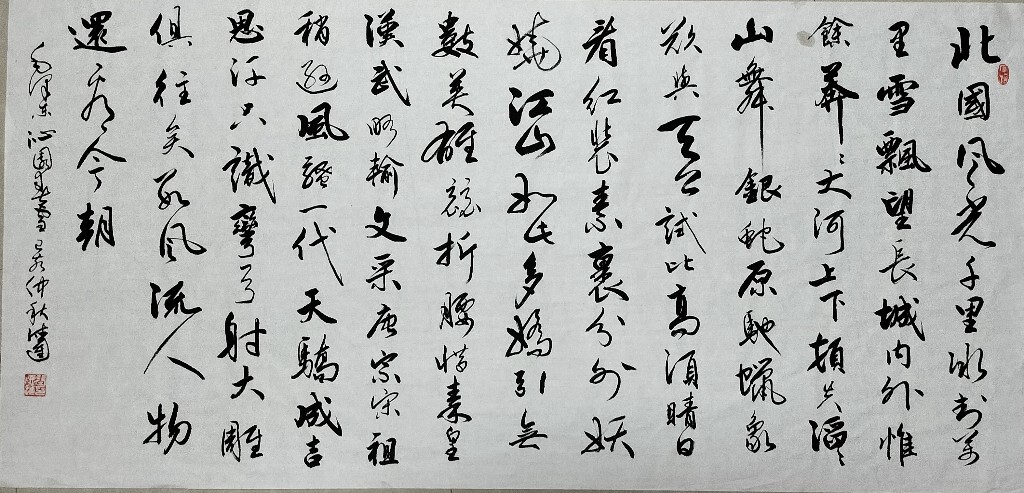 北國风光千里冰封万
里雪飄望長城内外惟
餘莽〻大河上下頓失滔〻
山舞銀蛇原馳蠟象
欲與天公試比高須晴日
看红裝素裹分外妖
嬈江山如此多嬌引無
數英雄競折腰惜秦皇
漢武略輸文采唐宗宋祖
稍逊風騷一代天驕成吉
思汗只識彎弓射大雕
俱往矣數风流人物
還看今朝
毛澤东沁園春雪 仲秋